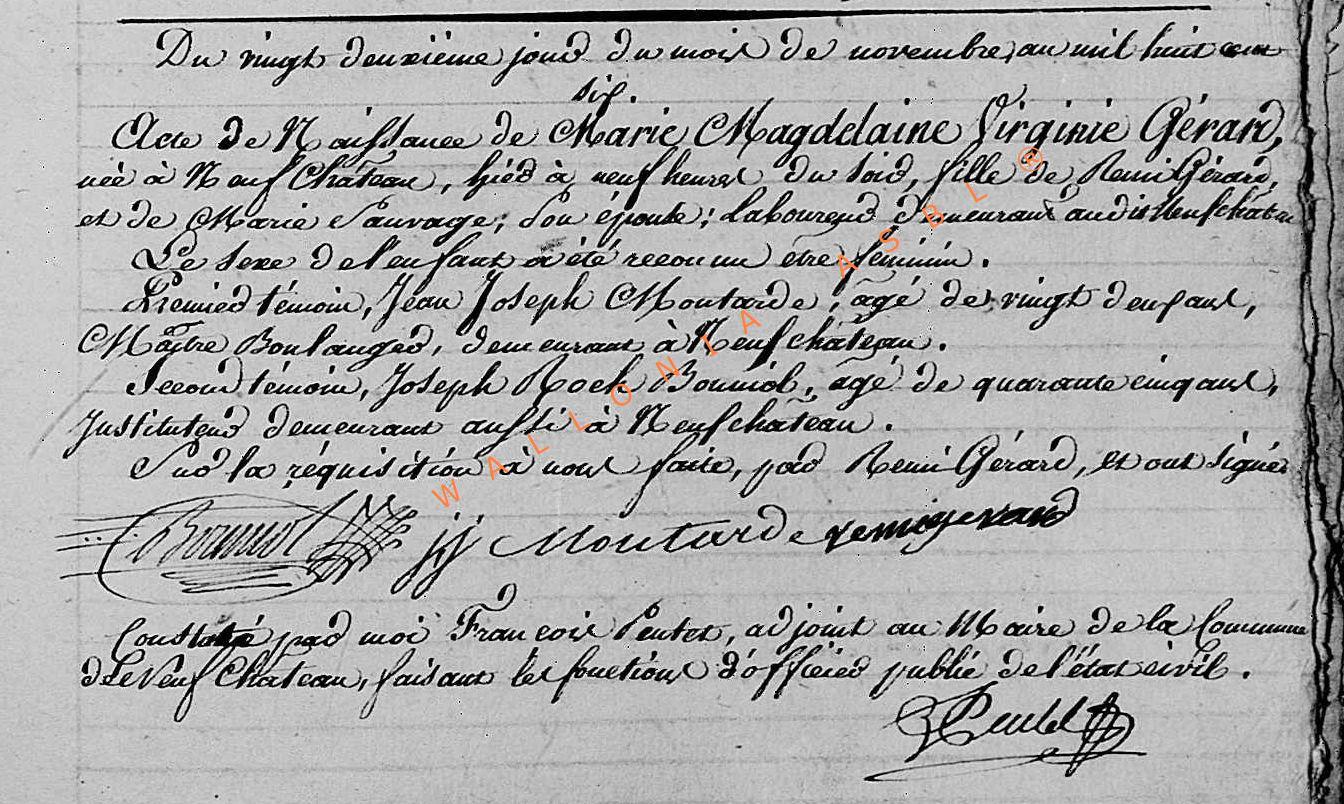 Du vingt deuxième jour du mois de novembre, an mil huit cent
six.
Acte de Naissance de Marie Magdelaine Virginie Gérard,
née à Neufchâteau, hier à neuf heures du soir, fille de Remi Gérard,
et de Marie Sauvage, son épouse; laboureur demeurant audit Neufchâteau
Le sexe de l'enfant a été reconnu être féminin.
Premier témoin, Jean Joseph Moutarde, âgé de vingt deux ans,
Maître Boulanger, demeurant à Neufchâteau.
Second témoin, Joseph Roch Bonniol, âgé de quarante cinq ans,
Instituteur demeurant aussi à Neufchâteau.
Sur la réquisition à nous faite, par Remi Gérard, et ont signés
Bonniol jj Moutarde remi gerard
Constaté par moi François Pentet, adjoint au Maire de la Commune
de Neufchateau, faisant les fonctions d'officier public de l'état civil.
Pentet
WALLONIA ASBL ®